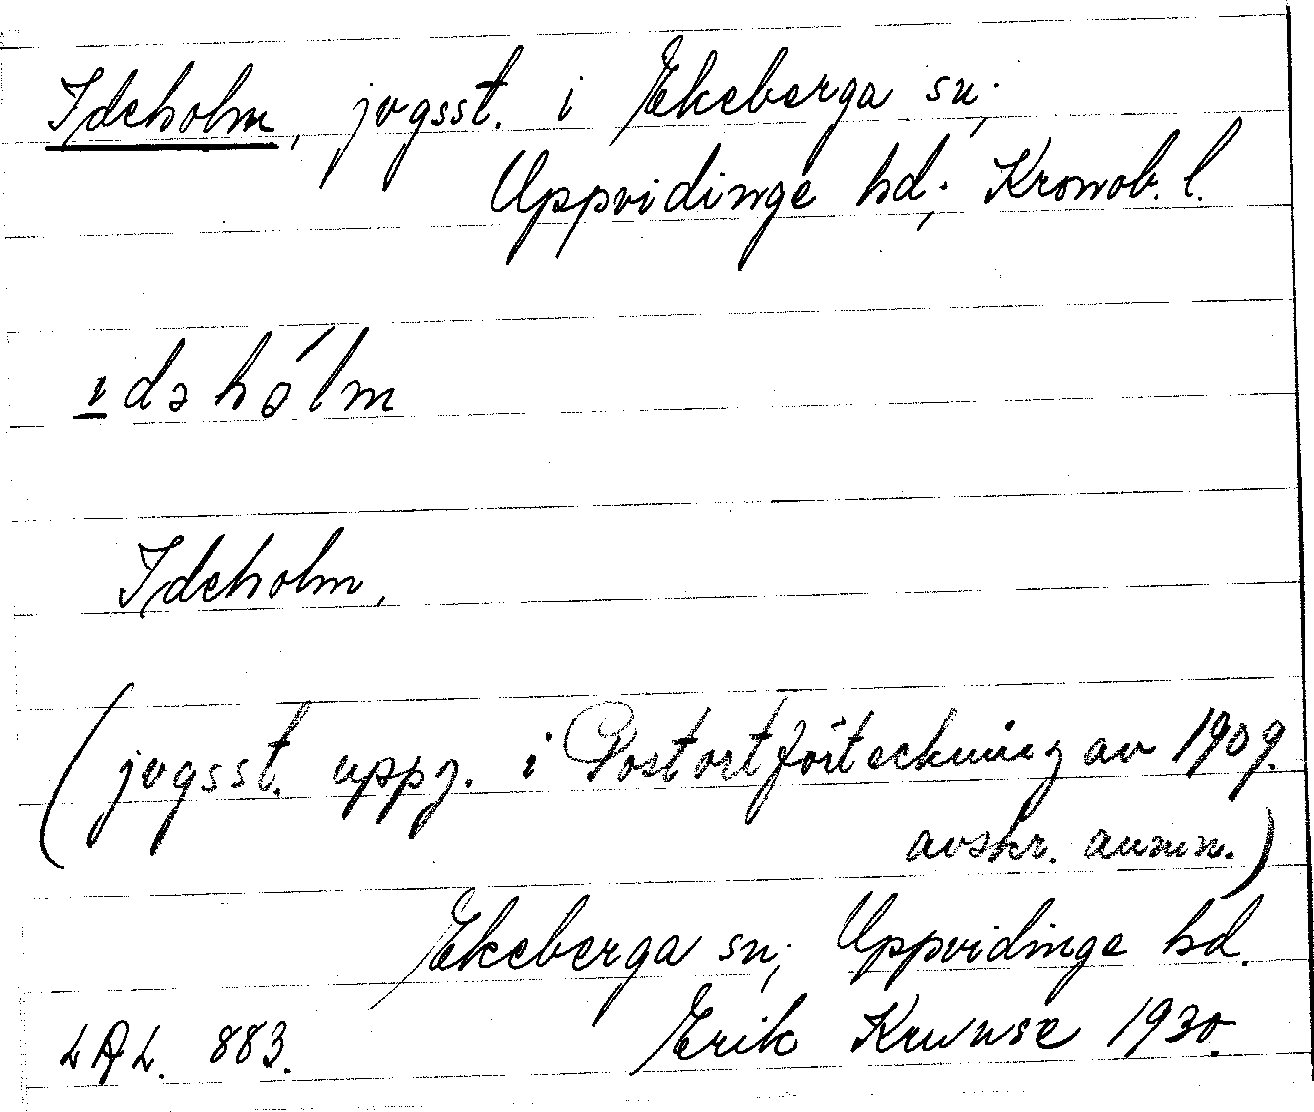 Ideholm, jvgsst. i Ekeberga sn;
Uppvidinge hd; Kronob. l.
ıdəhólm
Ideholm,
(jvgsst. uppg. i Postortförteckning av 1909.
avskr. anmn.)
Ekeberga sn; Uppvidinge hd.
Erik Kruuse 1930.
LAL. 883.